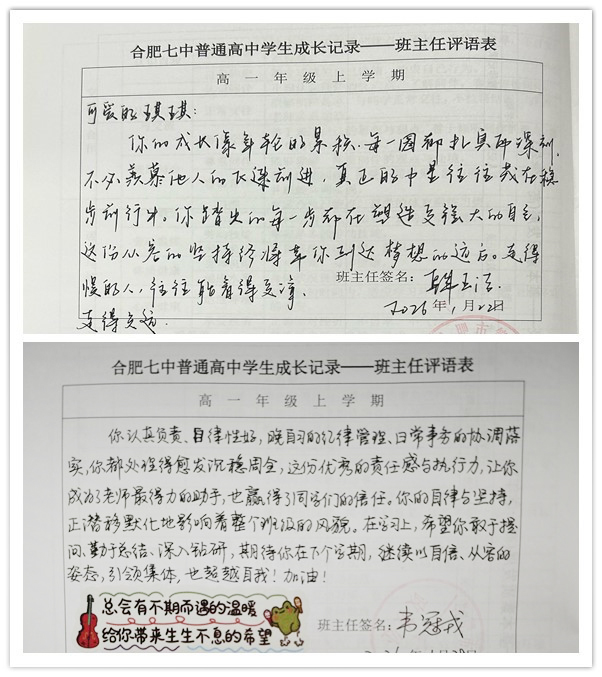 合肥七中普通高中学生成长记录——班主任评语表
高一年级上学期
可爱的琪琪:
你的成长像年轮的累积,每一圈都扎实而深刻,
不必羡慕他人的飞速前进,真正的力量往往藏在稳
步前行中。你踏出的每一步都在塑造更强大的自己,
这份从容的坚持终将带你到达梦想的远方。走得
慢的人,往往能看得更清、
走得更远.
班主任签名:
2026年1月22日
合肥七中普通高中学生成长记录——班主任评语表
高一年级上学期
你认真负责、自律性好,晚自习的纪律管理、日常事务的协调落
实,你都处理得愈发沉稳周全,这份优秀的责任感与执行力,让你
成为老师最得力的助手,也赢得了同学们的信任。你的自律与坚持,
正潜移默化地影响着整个班级的风貌。在学习上,希望你敢于提
问、勤于总结、深入钻研,期待你在下个学期,继续以自信、从容的
姿态,引领集体,也超越自我!加油!
总会有不期而遇的温暖
给你带来生生不息的希望
班主任签名:韦冠戎